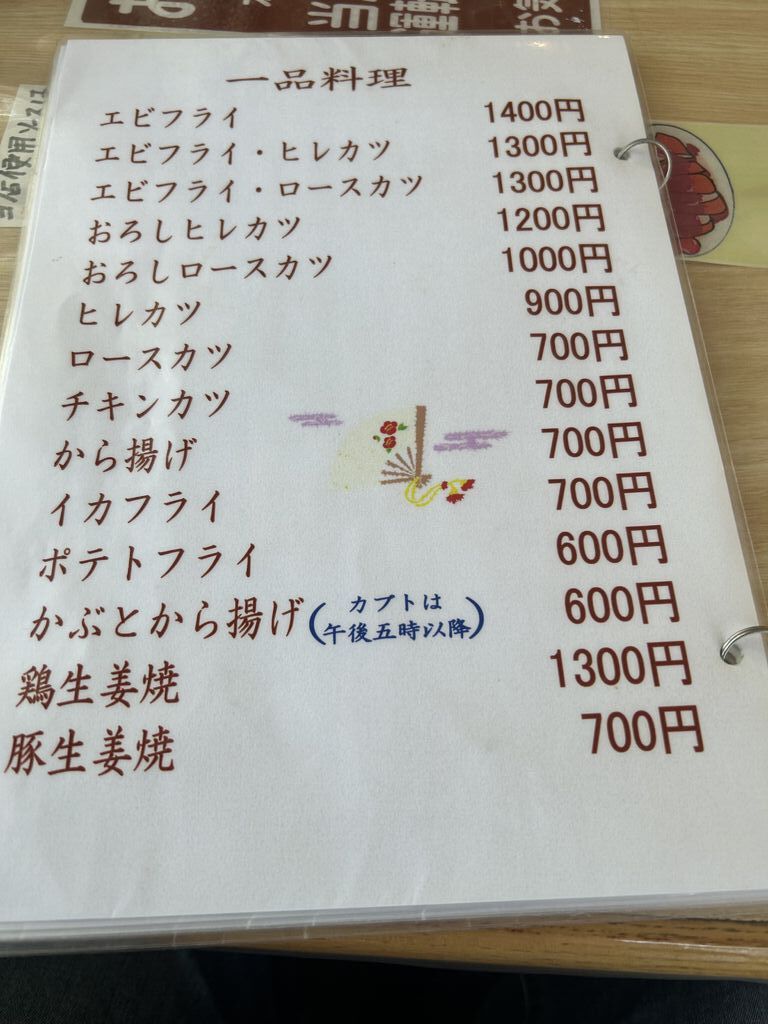 一品料理
エビフライ 1400円
エビフライ・ヒレカツ 1300円
エビフライ・ロースカツ 1300円
おろしヒレカツ 1200円
おろしロースカツ 1000円
ヒレカツ 900円
ロースカツ 700円
チキンカツ 700円
から揚げ 700円
イカフライ 700円
ポテトフライ 600円
かぶとから揚げ(カブトは午後五時以降) 600円
鶏生姜焼 1300円
豚生姜焼 700円